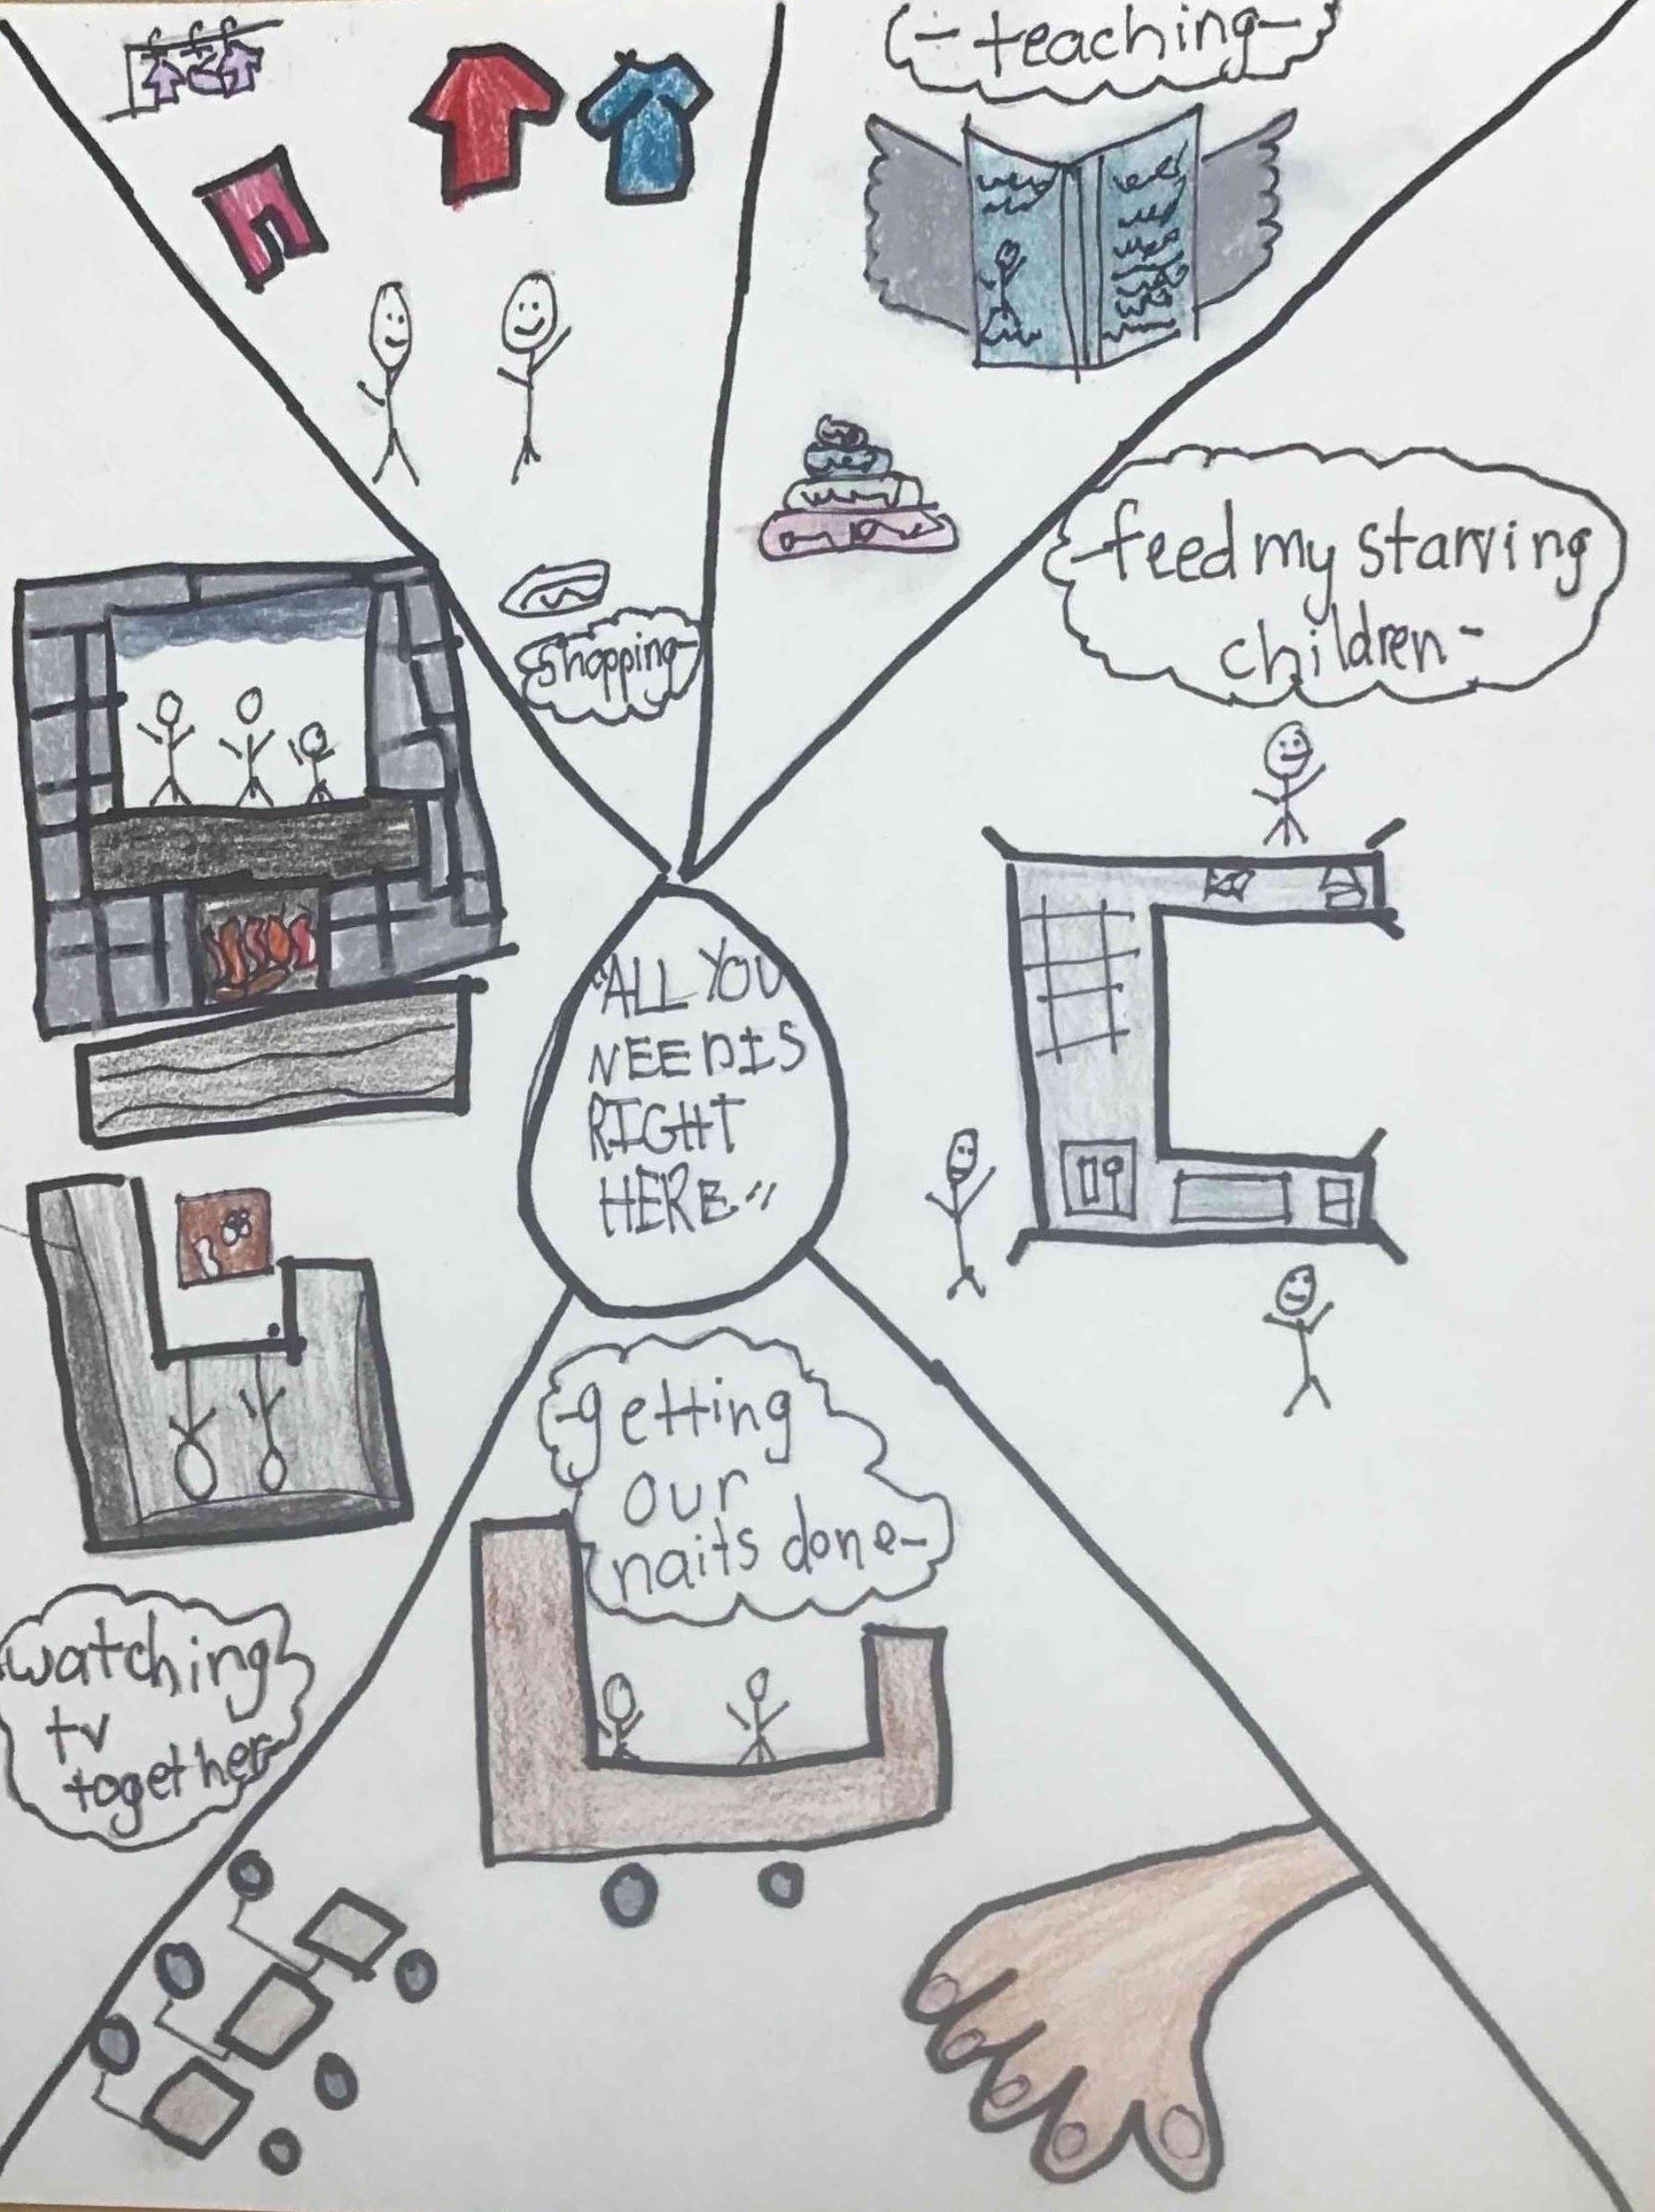 -teaching-
shopping-
-feed my starving
children-
"ALL YOU
NEED IS
RIGHT
HERE."
-getting
our
naits done-
watching
tv
together-